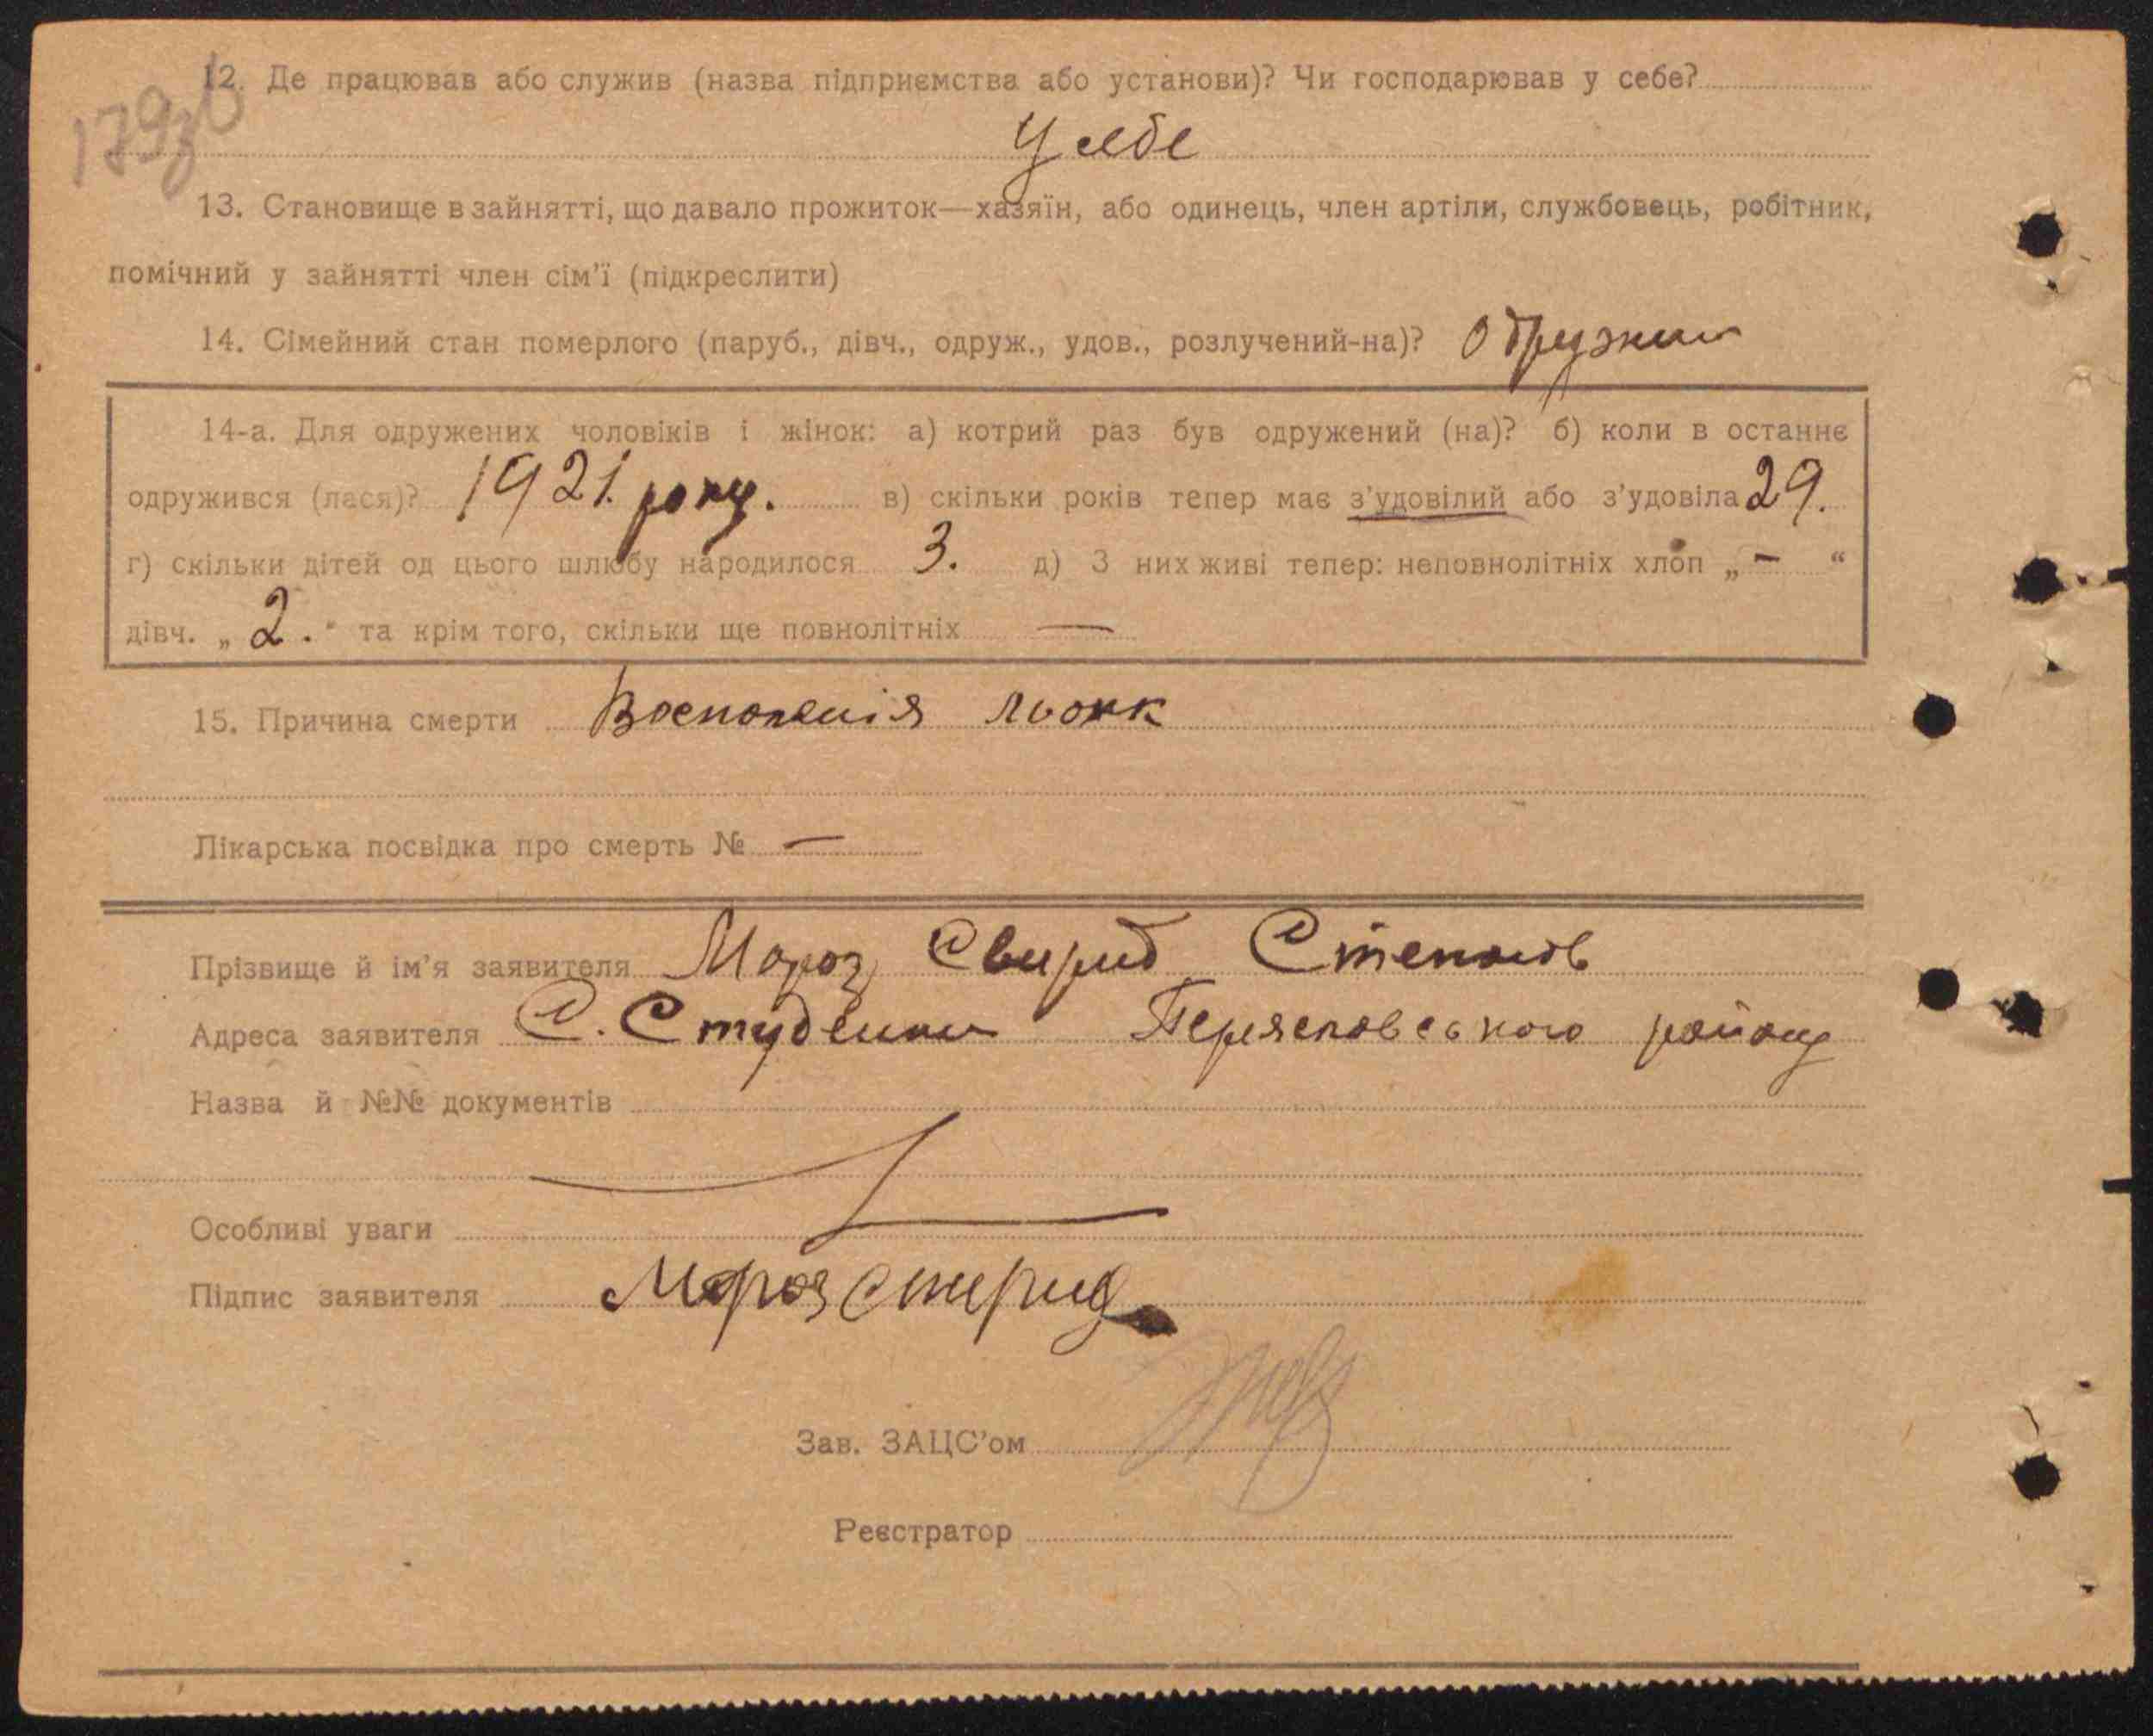 179зв
12. Де працював або служив (назва підприємства або установи)? Чи господарював у себе?
У себе
13. Становище в зайнятті, що давало прожиток—хазяїн, або одинець, член артіли, службовець, робітник,
помічний у зайнятті член сім'ї (підкреслити)
14. Сімейний стан померлого (паруб., дівч., одруж., удов., розлучений-на)?
14-а. Для одружених чоловіків і жінок: а) котрий раз був одружений (на)? б) коли в останнє
одружився (лася)? 1921. року. в) скільки років тепер має з'удовілий або з'удовіла 29.
г) скільки дітей од цього шлюбу народилося 3. д) З них живі тепер: неповнолітніх хлоп „ — “
дівч. „ 2. “ та крім того, скільки ще повнолітніх —
15. Причина смерти Воспаленія льогк
Лікарська посвідка про смерть № —
Прізвище й ім'я заявителя Мороз Свирид Степанов
Адреса заявителя С. Студенки Переяславського району
Назва й №№ документів
Особливі уваги
Підпис заявителя Мороз Свирид
Зав. ЗАЦС'ом
Реєстратор